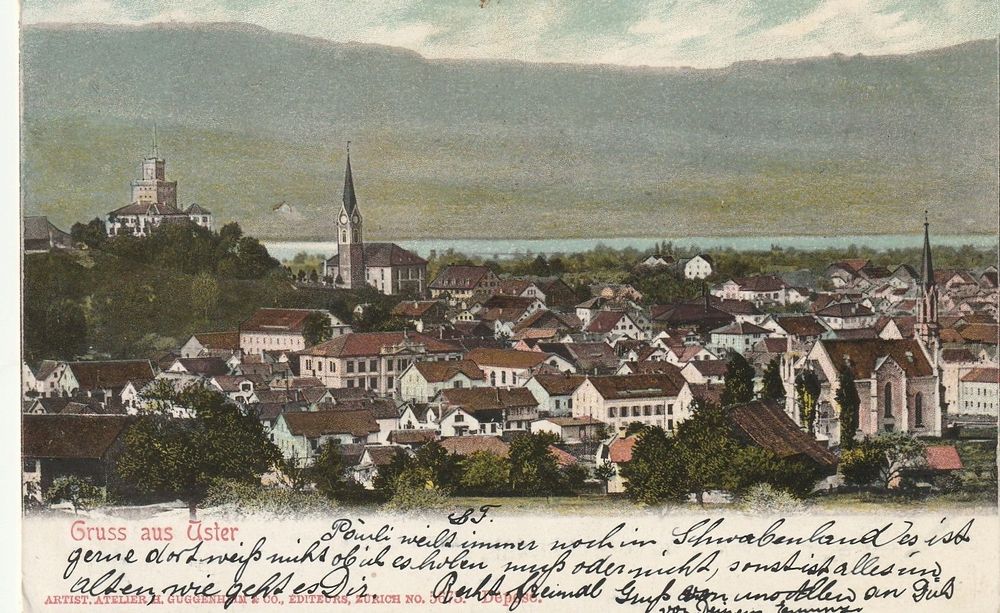 S.T.
Gruss aus Uster
Pöuli weilt immer noch im Schwabenland es ist
gerne dort weiß nicht ob ich es holen muß oder nicht, sonst ist alles im
alten, wie geht es Dir. Recht freundl Gruß von uns Allen an Dich
ARTIST. ATELIER H. GUGGENHEIM & CO., EDITEURS, ZÜRICH NO. Dépose.
von Deinem